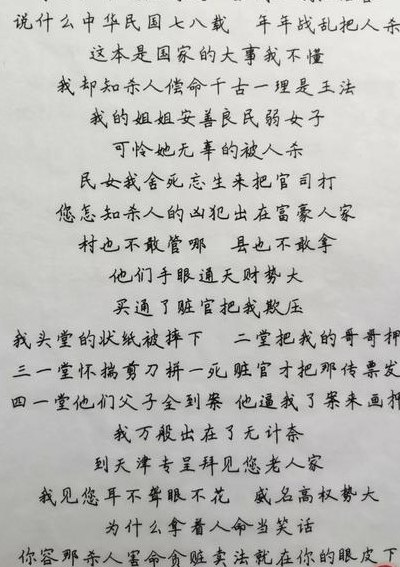 说什么中华民国七八载 年年战乱把人杀
这本是国家的大事我不懂
我却知杀人偿命千古一理是王法
我的姐姐安善良民弱女子
可怜她无辜的被人杀
民女我舍死忘生来把官司打
您怎知杀人的凶犯出在富豪人家
村也不敢管哪 县也不敢拿
他们手眼通天财势大
买通了赃官把我欺压
我头堂的状纸被摔下 二堂把我的哥哥押
三一堂怀揣剪刀拼一死赃官才把那传票发
四一堂他们父子全到案 他逼我了案来画押
我万般出在了无计奈
到天津专呈拜见您老人家
我见您耳不聋眼不花 威名高权势大
为什么拿着人命当笑话
你容那杀人害命贪赃卖法就在你的眼皮下